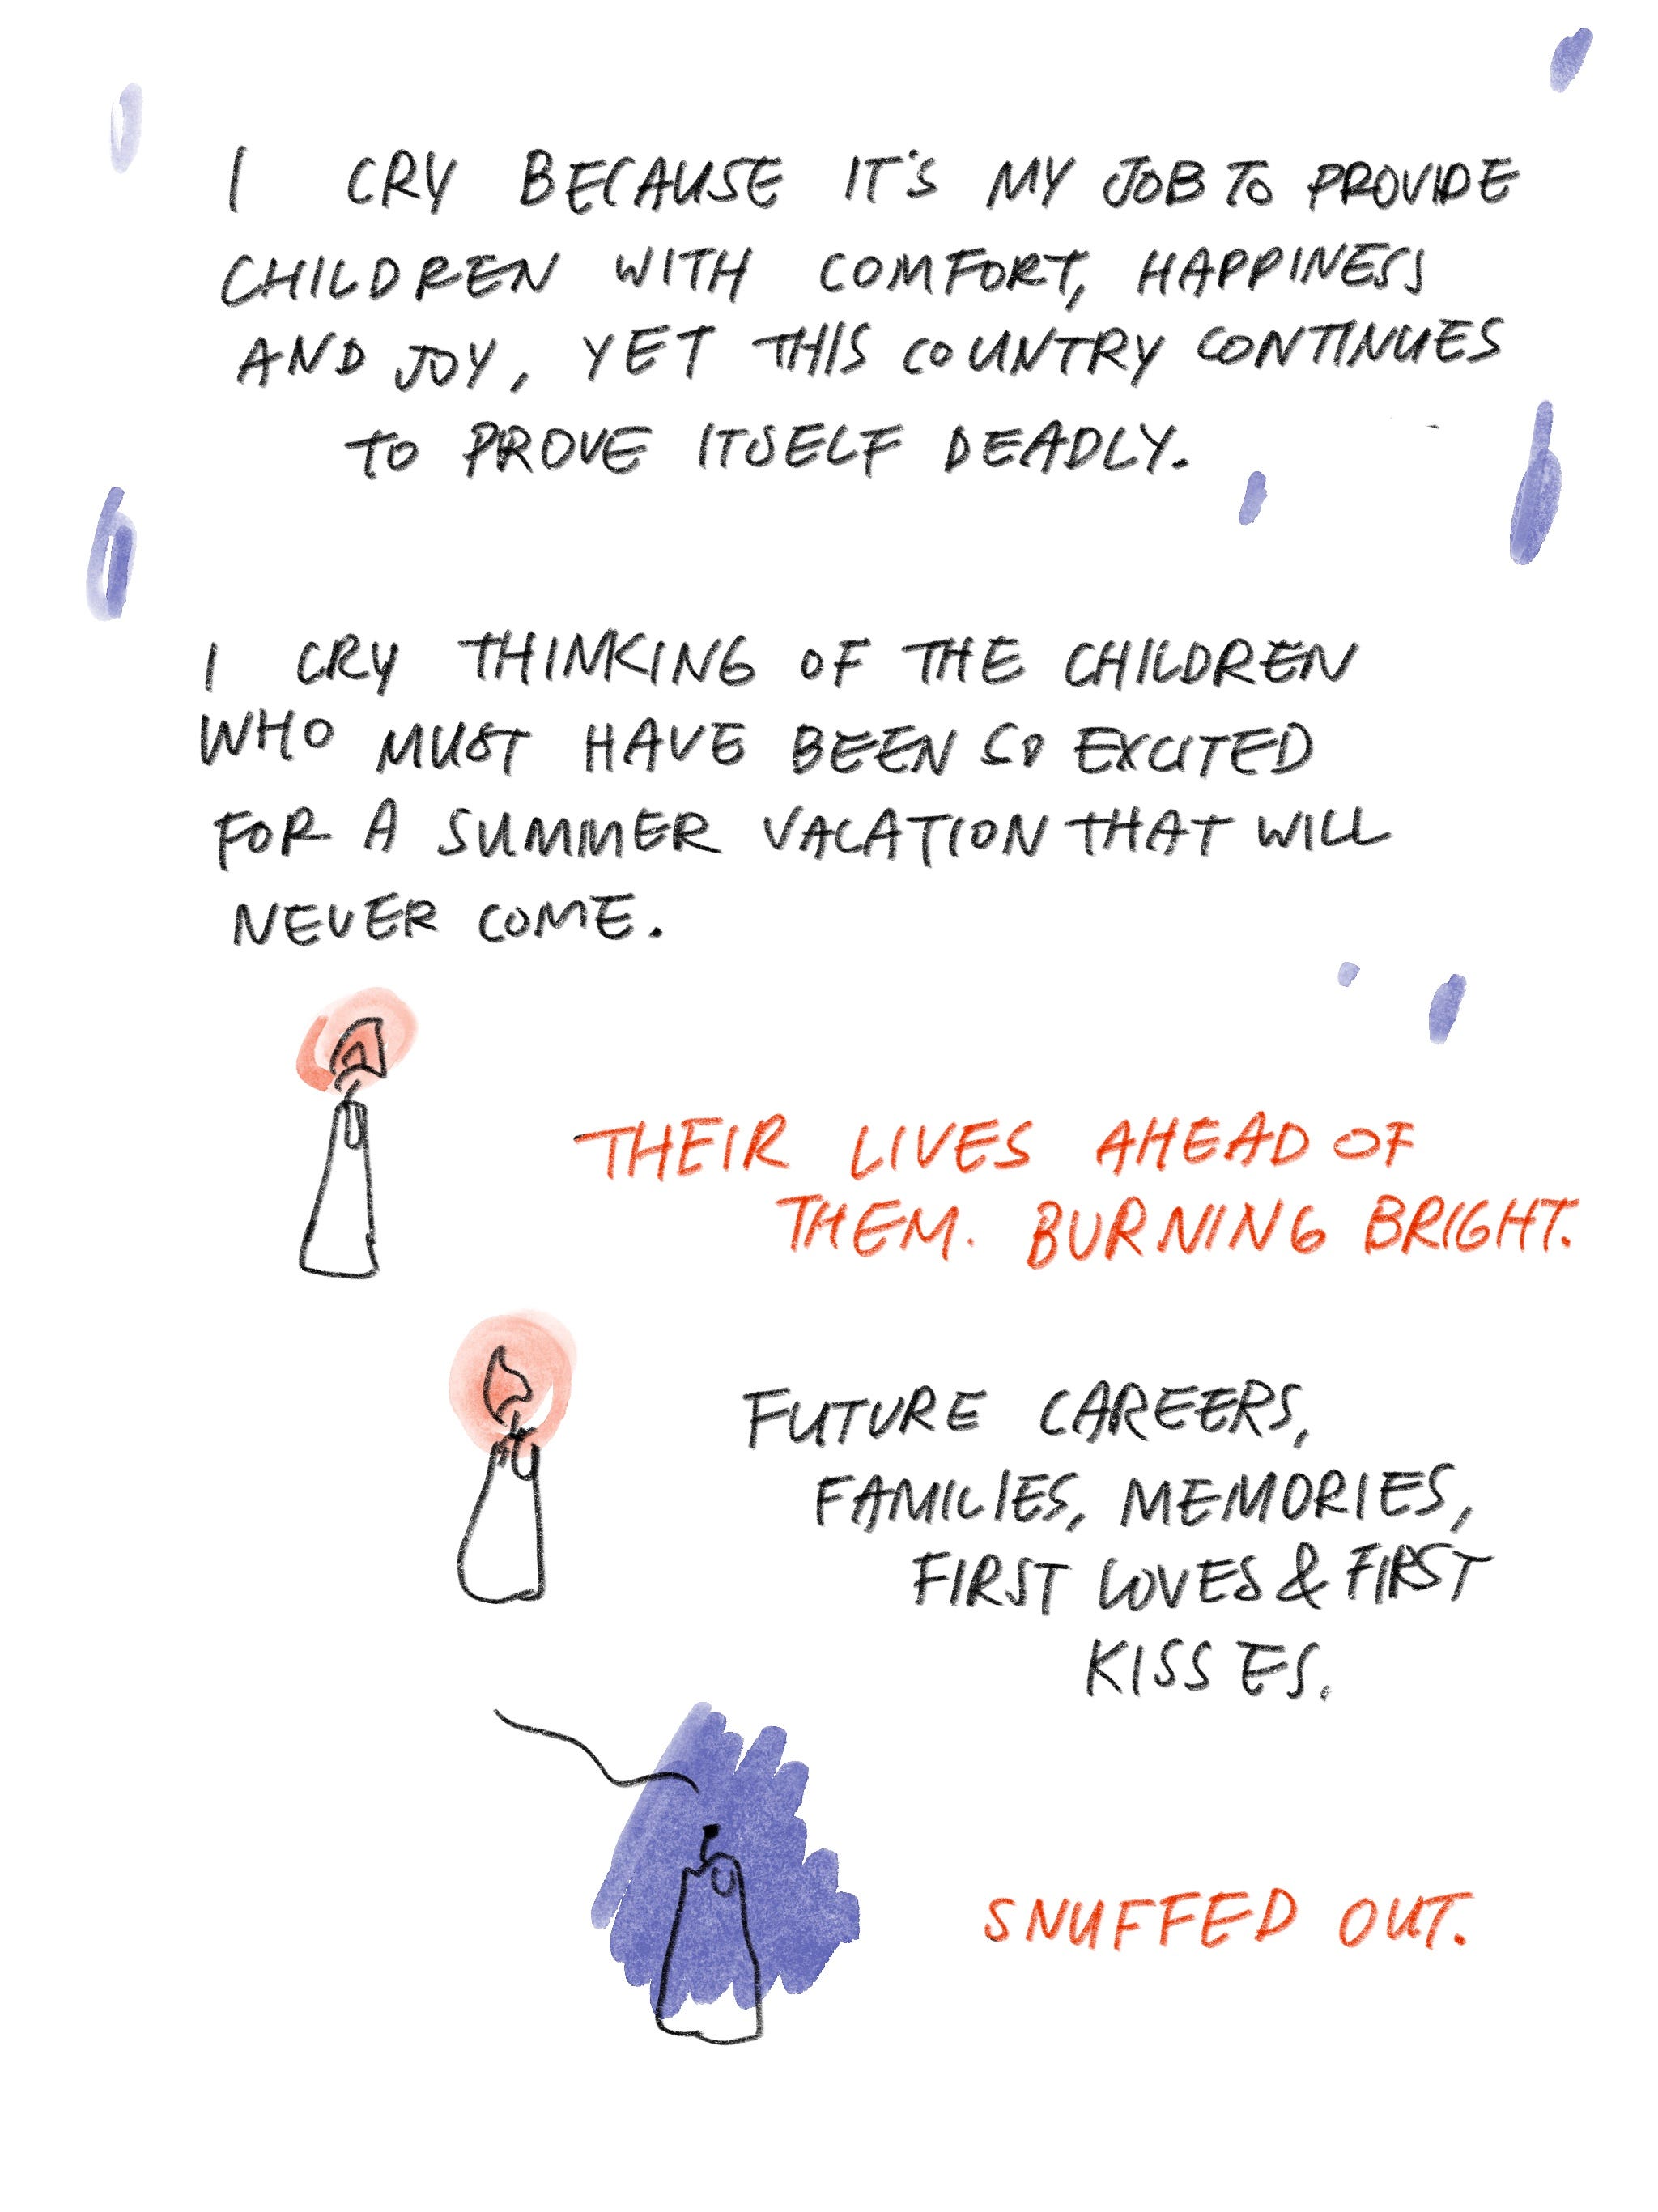 I CRY BECAUSE IT'S MY JOB TO PROVIDE
CHILDREN WITH COMFORT, HAPPINESS
AND JOY, YET THIS COUNTRY CONTINUES
TO PROVE ITSELF DEADLY.
I CRY THINKING OF THE CHILDREN
WHO MUST HAVE BEEN SO EXCITED
FOR A SUMMER VACATION THAT WILL
NEVER COME.
THEIR LIVES AHEAD OF
THEM. BURNING BRIGHT.
FUTURE CAREERS,
FAMILIES, MEMORIES,
FIRST LOVES & FIRST
KISSES.
SNUFFED OUT.